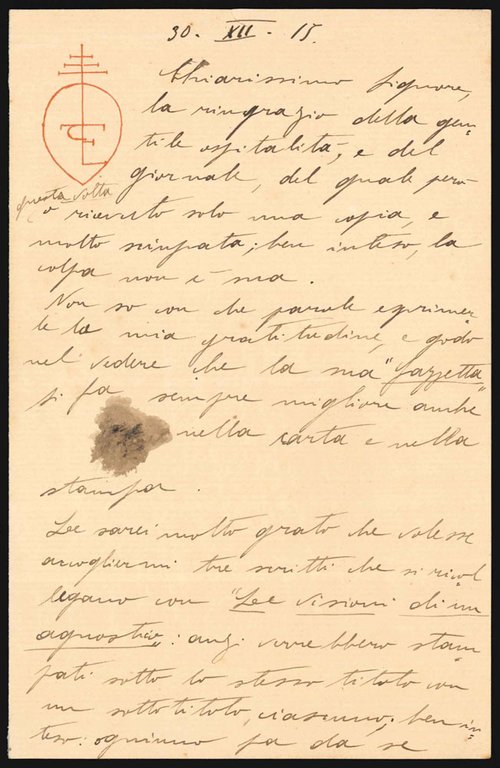 30. XII. 15.
Chiarissimo Signore,
la ringrazio della gen=
tile ospitalità, e del
giornale, del quale però
questa volta
ò ricevuto solo una copia, e
molto sciupata; ben inteso, la
colpa non è sua.
Non so con che parole esprimer=
le la mia gratitudine, e godo
nel vedere che la sua "Gazzetta"
si fa sempre migliore anche
nella carta e nella
stampa.
Le sarei molto grato che volesse
accogliermi tre scritti che si ricol=
legano con "Le visioni di un
agnostico": anzi vorrebbero stam=
pati sotto lo stesso titolo con
un sottotitolo, ciascuno; ben in=
teso: ognuno fa da se